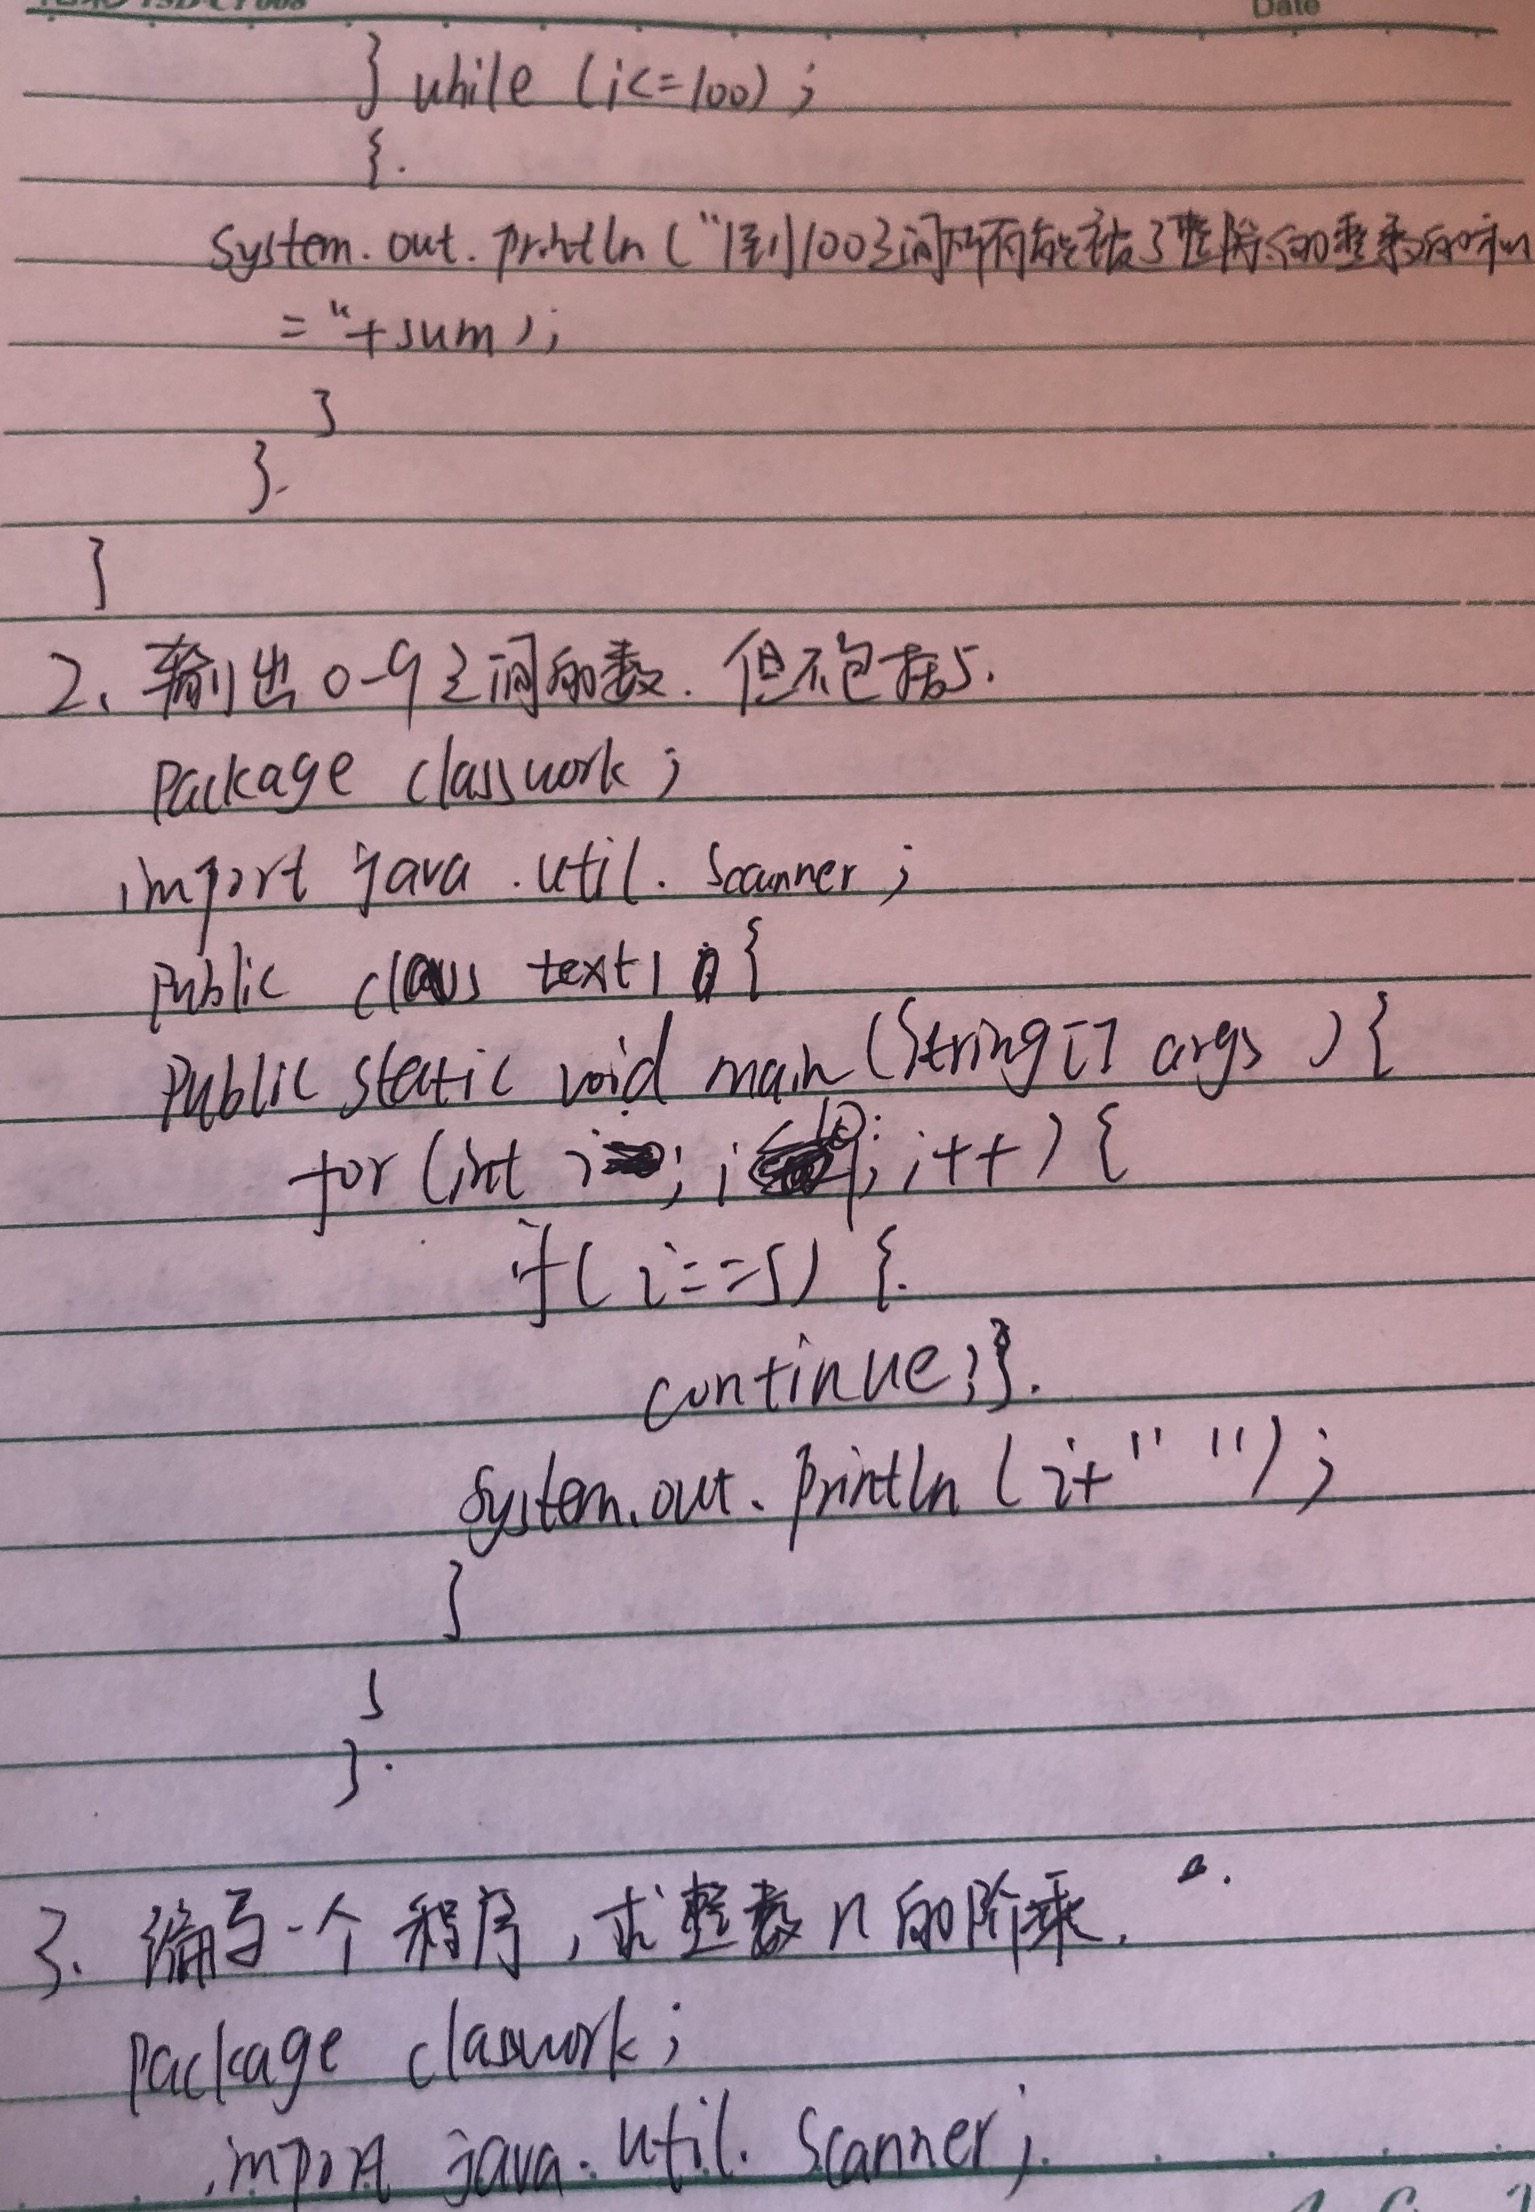 Date
} while (i<=100);
{.
System.out.println("1到100之间所有能被3整除的整数的和
="+sum);
}
}.
}
2、输出0-9之间的数.但不包括5.
Package classwork;
import java.util.Scanner;
Public class text1 {
Public static void main(String[] args){
for(int i ; i ; i++){
if(i==5) {.
continue;}.
System.out.println(i+" ");
}
}
}.
3、编写一个程序,求整数n的阶乘.
Package classwork;
import java.util.Scanner;